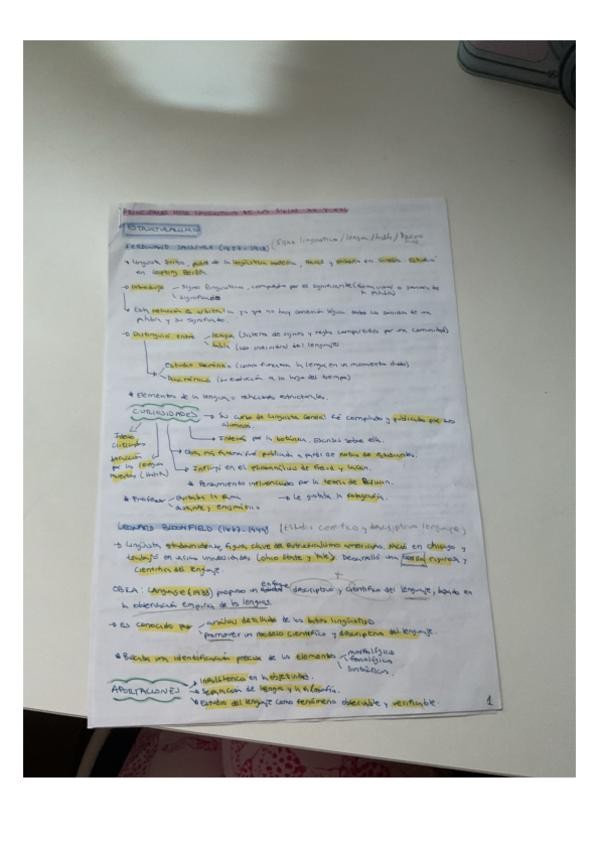 PRINCIPALES DE LOS SIGLOS XX Y XXI
ESTRUCTURALISMO
FERDINAND SAUSSURE (Signo lingüístico / lengua / habla /
→ Lingüista Suizo, padre de la lingüística moderna, nació y en Suiza. Estudió
en Leipzig, Berlín
→ Introdujo - signo lingüístico, compuesto por el significante
significado
Esta relación es arbitraria ya que no hay conexión lógica entre los sonidos de una
palabra y su significado.
→ Distinguió entre → lengua (sistema de signos y reglas compartidas por una comunidad)
habla (uso individual del lenguaje)
(como funciona la lengua en un momento dado)
Diacrónico (su evolución a lo largo del tiempo)
* Elementos de la lengua = relaciones estructurales.
CURIOSIDADES → Su curso de Lingüística General fué compilado y publicado por sus
alumnos.
→ Interés por la botánica. Escribió sobre ella.
→ Obra más publicada a partir de notas de estudiantes.
→ Influyó en el psicoanálisis de Freud y Lacan.
* Pensamiento influenciado por la teoría de Darwin.
* Profesor → Le gustaba la fotografía.
y enigmático
LEONARD BLOOMFIELD (1887-1949) (Estudio científico y descriptivo lenguaje)
→ Lingüista estadounidense, figura clave del estructuralismo americano. Nació en Chicago y
trabajó en varias universidades (Ohio State y Yale). Desarrolló una rigurosa y
científica del lenguaje.
OBRA: Language (1933) propuso un enfoque descriptivo y científico del lenguaje, basado en
la observación empírica de las lenguas.
→ Es conocido por → análisis detallado de los datos lingüísticos
promover un modelo científico y descriptivo del lenguaje.
* Buscaba una identificación precisa de los elementos → morfológicos
fonológicos
sintácticos.
APORTACIONES → en la objetividad.
→ Separación de lengua y la filosofía.
→ Estudio del lenguaje como fenómeno observable y verificable.
1